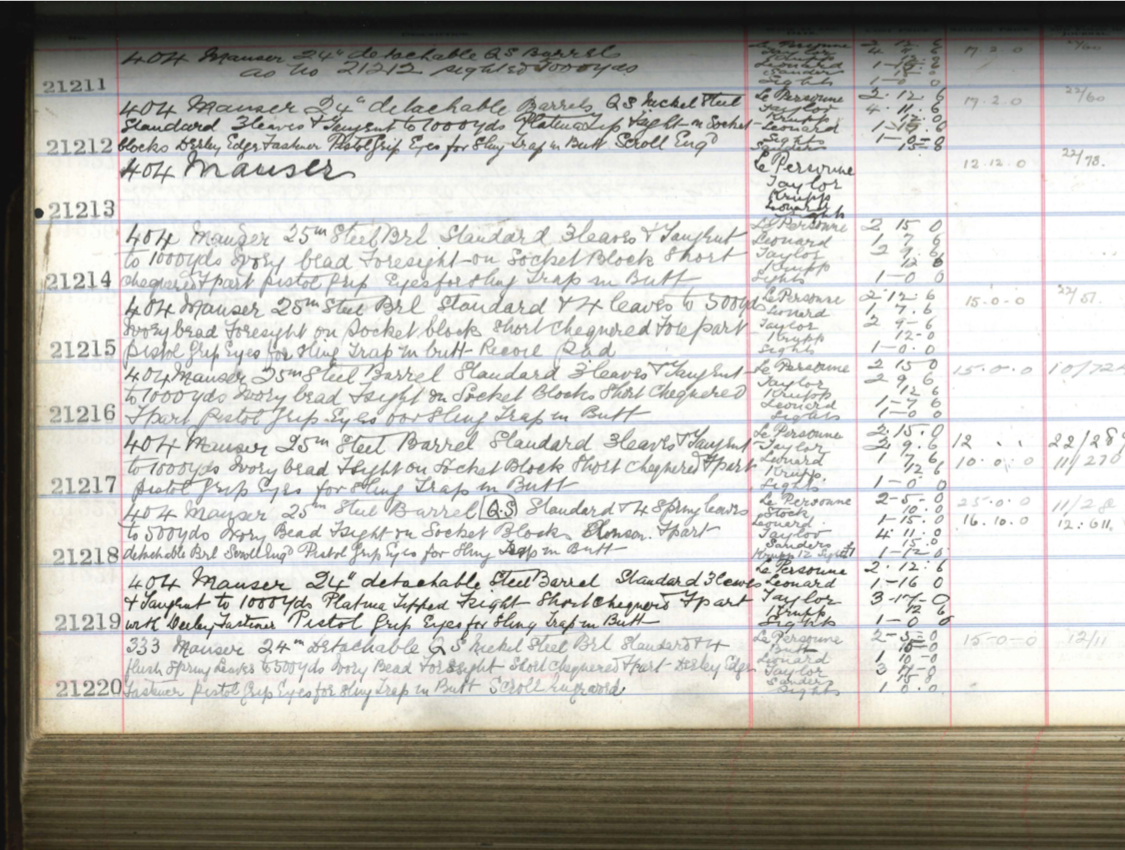 404 Mauser 24" detachable QS Barrels Le Personne 2 12 6 17.2.0 22/60
as No 21212 sighted 1000yds Taylor
Leonard
Sanders
21211 Sights 1-0-0
404 Mauser 24" detachable Barrels QS Nickel Steel Le Personne 2.12.6 17.2.0 22/60
Standard 3 leaves & Tangent to 1000yds Platina Tip Fsight on Socket Taylor 4.11.6
Krupp 12.0
Leonard 1-15.6
21212 blocks Derley Edge Fastner Pistol Grip Eyes for Sling Trap in Butt Scroll Engd Sights
Sanders
404 Mauser Le Personne 12.12.0 22/78.
Taylor
Krupp
Leonard
21213 Sights
404 Mauser 25in Steel Brl Standard 3 leaves & Tangent Le Personne 2 15 0
Leonard 1 7 6
to 1000yds Ivory bead Foresight on Socket Block Short Taylor 2 9 6
Krupp 12 6
21214 chequered Fpart pistol Grip Eyes for Sling Trap in Butt Sights 1-0-0
404 Mauser 25in Steel Brl Standard & 4 leaves to 500yds Le Personne 2.12.6 15.0.0 22/51.
Leonard 1.7.6
Ivory bead Foresight on Socket blocks Short chequered Fore part Taylor 2 9-6
Krupp 12-0
21215 pistol Grip Eyes for Sling Trap in butt Recoil Pad Sights 1-0.0
404 Mauser 25in Steel Barrel Standard 3 leaves & Tangent Le Personne 2 15 0 15.0.0 10/72
Taylor 2 9 6
to 1000yds Ivory bead Fsight on Socket Blocks Short Chequered Krupp 12 6
Leonard 1-7-6
21216 Fpart Pistol Grip Eyes for Sling Trap in Butt Sights 1-0 0
404 Mauser 25in Steel Barrel Standard 3 leaves & Tangent Le Personne 2.15.0 12 . . 22/28
Taylor 2.9.6
to 1000yds Ivory bead Fsight on Socket Block Short Chequered Fpart Leonard 1 7 6 10.0.0 11/270
Krupp 12 6
21217 pistol Grip Eyes for Sling Trap in Butt Sights 1-0 0
404 Mauser 25in Steel Barrel QS Standard & 4 Spring leaves Le Personne 2-5-0 25.0.0 11/28
Stock 10.0
to 500yds Ivory Bead Fsight on Socket Block Fpart Leonard 1-15.0 16.10.0
Taylor 4 11.0
Sanders 15.0
21218 detachable Brl Scroll Engd Pistol Grip Eyes for Sling Trap in Butt Krupp 12 Sights 1-12-0
404 Mauser 24" detachable Steel Barrel Standard 3 leaves Le Personne 2.12:6
Leonard 1-16 0
& Tangent to 1000yds Platina Tipped Fsight Short chequered Fpart Taylor 3-17-0
Krupp 12 6
21219 with Derley Fastener Pistol Grip Eyes for Sling Trap in Butt Sights 1-0 0
333 Mauser 24in Detachable QS Nickel Steel Brl Standard & 4 Le Personne 2-5=0 15-0-0 12/11
flush Spring leaves to 500yds Ivory Bead Foresight Short chequered Fpart Derley Edge Leonard 1 10-0
Taylor 3 17-0
Sanders 15 0
21220 Fastener pistol Grip Eyes for Sling Trap in Butt Scroll Engraved Sights 1 0.0